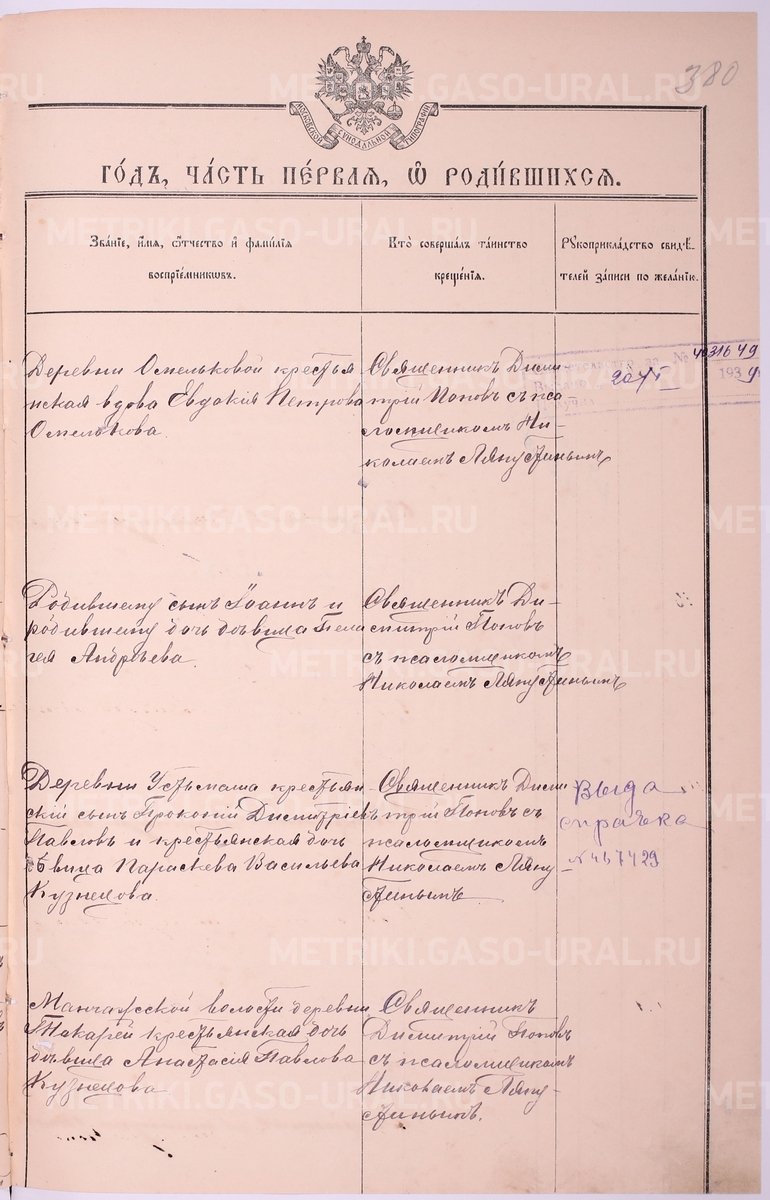 380
МОСКОВСКОЙ СѴНОДАЛЬНОЙ ТИПОГРАФІИ
ГО́ДЪ, ЧА́СТЬ ПЕ́РВАЯ, Ѡ РОДИ́ВШИХСЯ.
Зва́нїе, и́мя, ѻ́тчество и фами́лїя
воспрїе́мниковъ.
Кто̀ соверша́лъ та́инство
креще́нїя.
Рꙋкоприкла́дство свидѣ́-
телей за́писи по жела́нїю.
Деревни Омельковой крестья
нская вдова Евдокія Петрова
Омелькова.
Священникъ Дими
трій Поповъ с пса
ломщикомъ Ни-
колаемъ Ляпустинымъ
№ 4031649
193
Родившему сынъ Іоаннъ и
родившему дочь дѣвица Пела
гея Андреева.
Священникъ Ди-
митрій Поповъ
съ псаломщикомъ
Николаемъ Ляпустинымъ
Деревни Устьмаша крестьян
скій сынъ Прокопій Димитріевъ
Павловъ и крестьянская дочь
дѣвица Параскева Васильева
Кузнецова.
Священникъ Дими
трій Поповъ съ
псаломщикомъ
Николаемъ Ляпу-
стинымъ
Выда
справка
№ 457429
Манчажской волости деревни
Токарей крестьянская дочь
дѣвица Анастасія Павлова
Кузнецова
Священникъ
Димитрій Поповъ
съ псаломщикомъ
Николаемъ Ляпу-
стинымъ.
METRIKI.GASO-URAL.RU